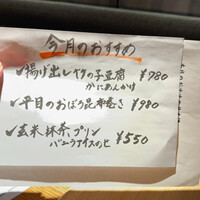 今月のおすすめ
✓揚げ出し竹の子豆腐 ¥780
かにあんかけ
✓平目のおぼろ昆布巻き ¥980
✓玄米、抹茶、プリン ¥550
バニラアイスのせ